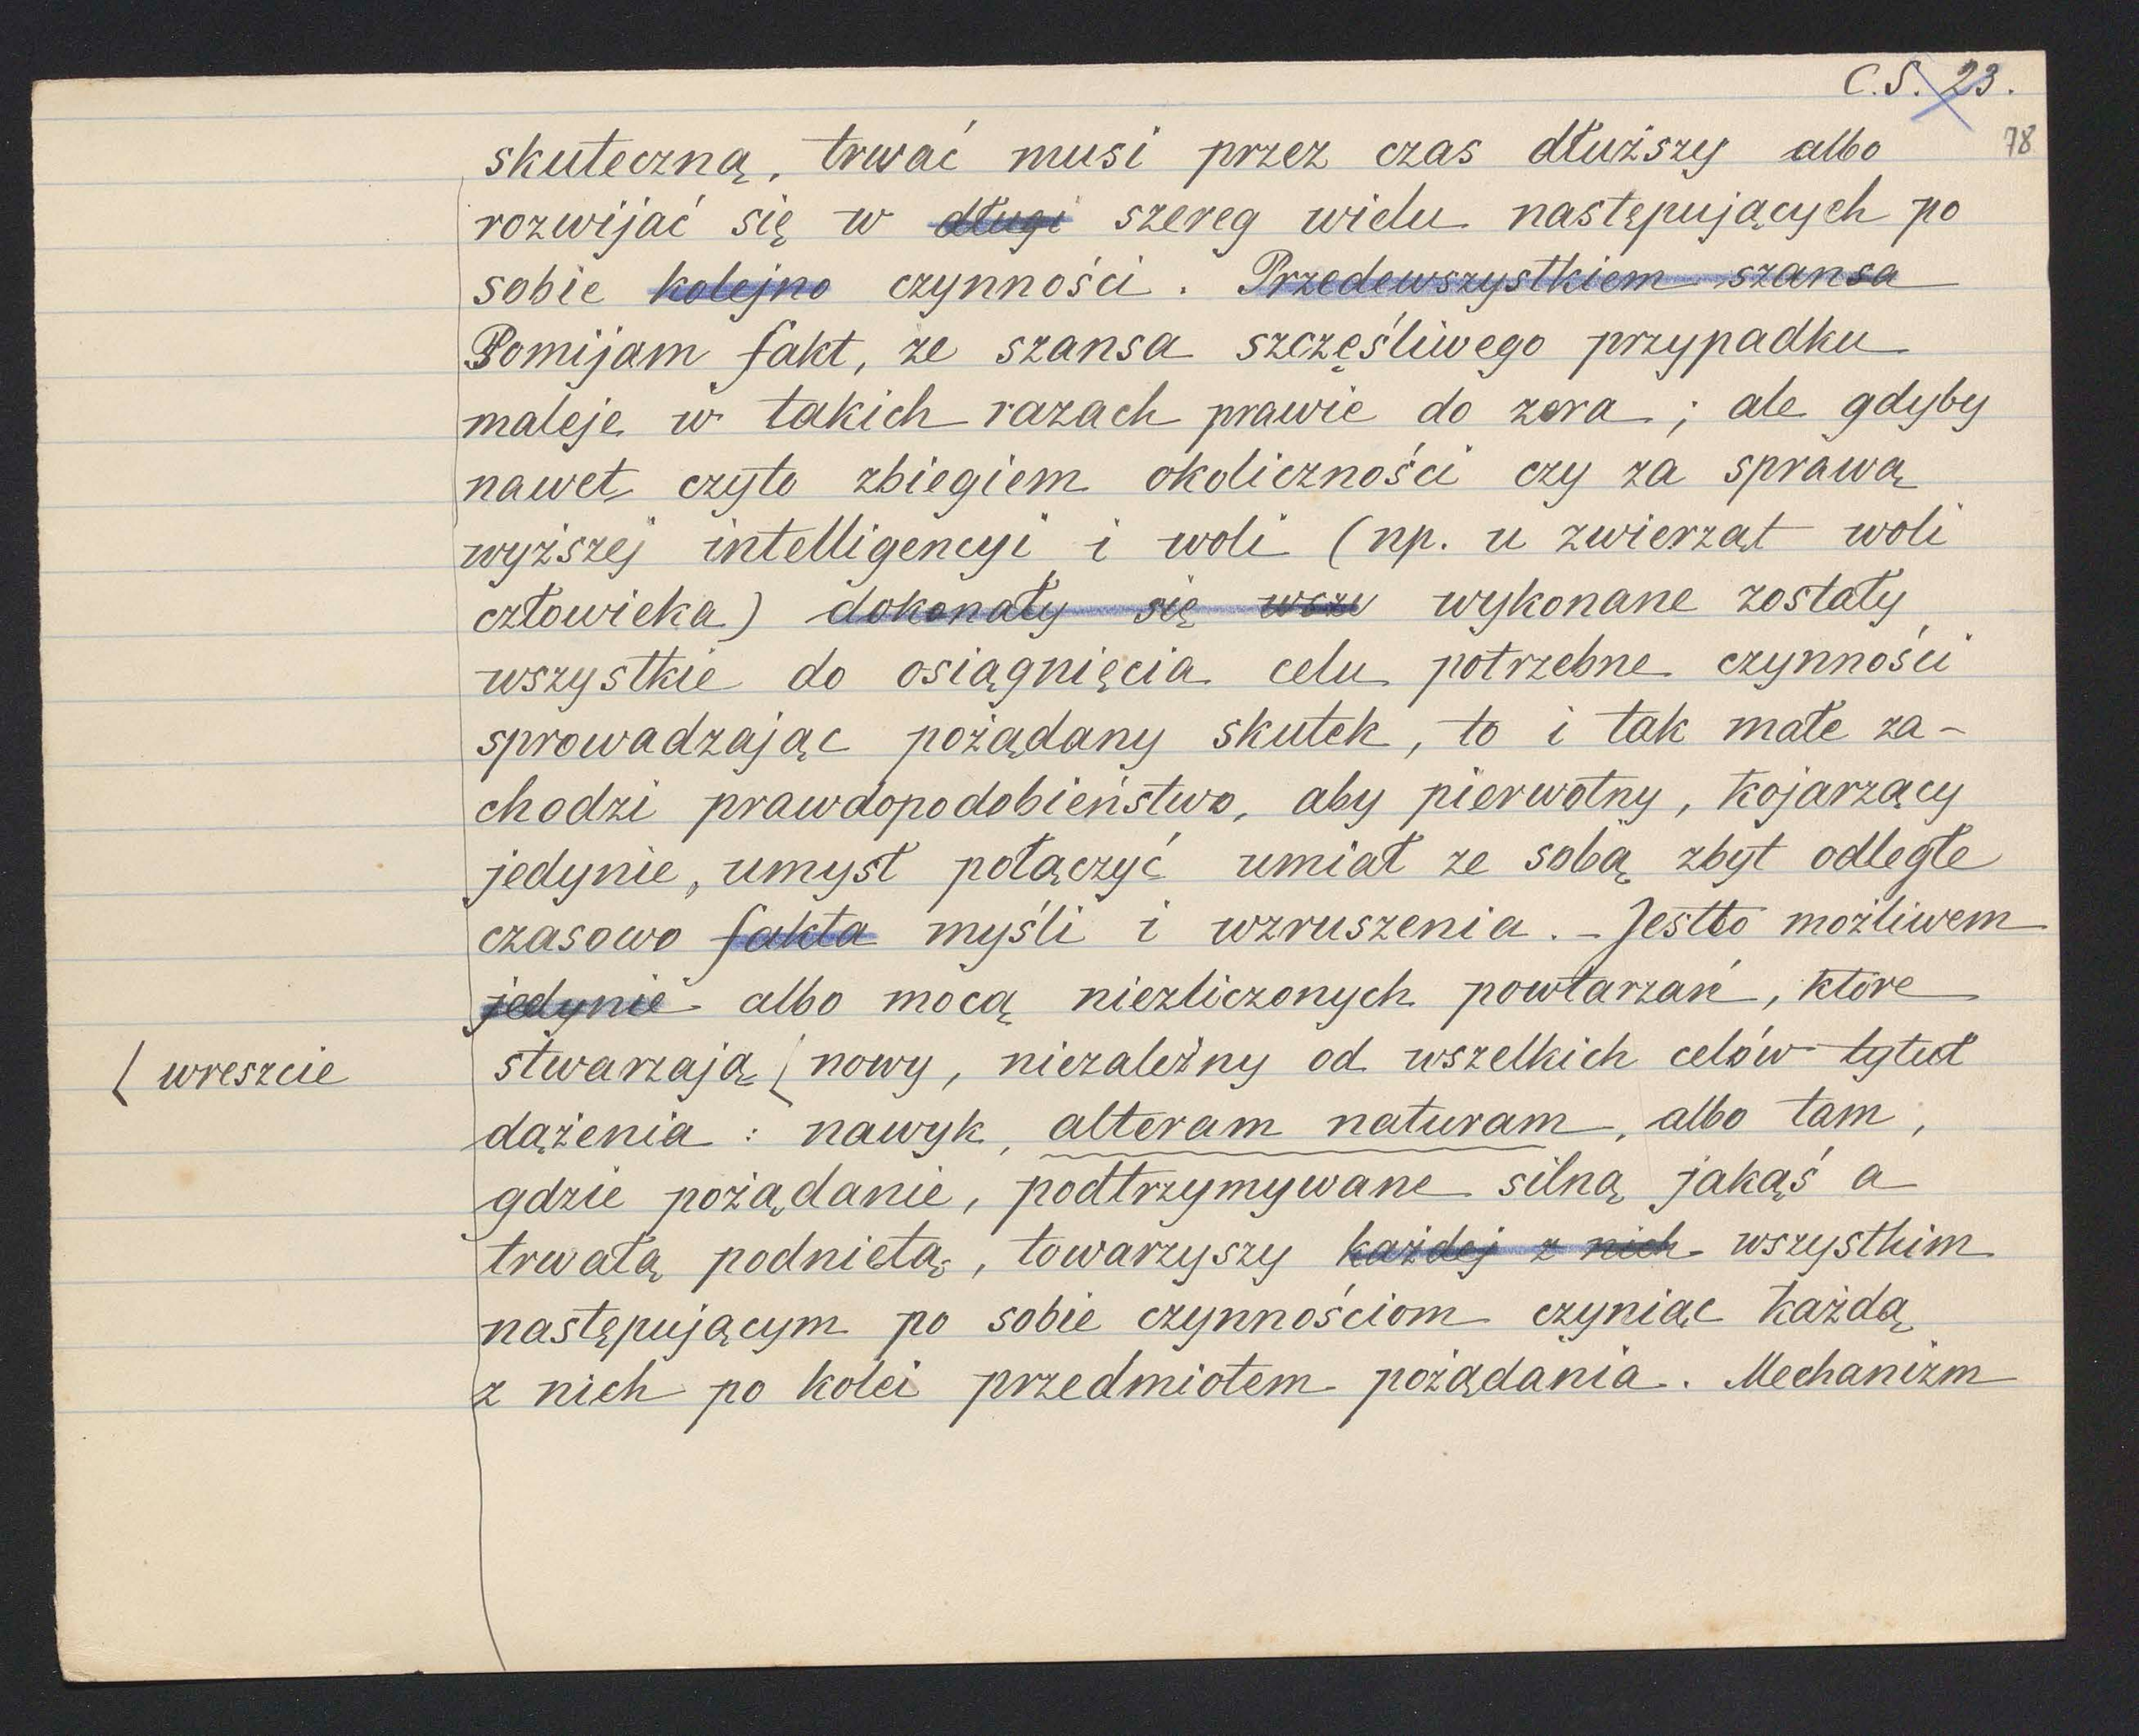 C.S. 23.
78
skuteczną, trwać musi przez czas dłuższy albo
rozwijać się w długi szereg wielu następujących po
sobie kolejno czynności. Przedewszystkiem szansa
Pomijam fakt, że szansa szczęśliwego przypadku
maleje w takich razach prawie do zera; ale gdyby
nawet czyto zbiegiem okoliczności czy za sprawą
wyższej intelligencyi i woli (np. u zwierząt woli
człowieka) dokonały się wszy wykonane zostały
wszystkie do osiągnięcia celu potrzebne czynności
sprowadzając pożądany skutek, to i tak małe za-
chodzi prawdopodobieństwo, aby pierwotny, kojarzący
jedynie, umysł połączyć umiał ze sobą zbyt odległe
czasowo fakta myśli i wzruszenia. - Jestto możliwem
jedynie albo mocą niezliczonych powtarzań, które
( wreszcie
stwarzają ( nowy, niezależny od wszelkich celów tytuł
dążenia: nawyk, alteram naturam, albo tam,
gdzie pożądanie, podtrzymywane silną jakąś a
trwałą podnietą, towarzyszy każdej z nich wszystkim
następującym po sobie czynnościom czyniąc każdą
z nich po kolei przedmiotem pożądania. Mechanizm